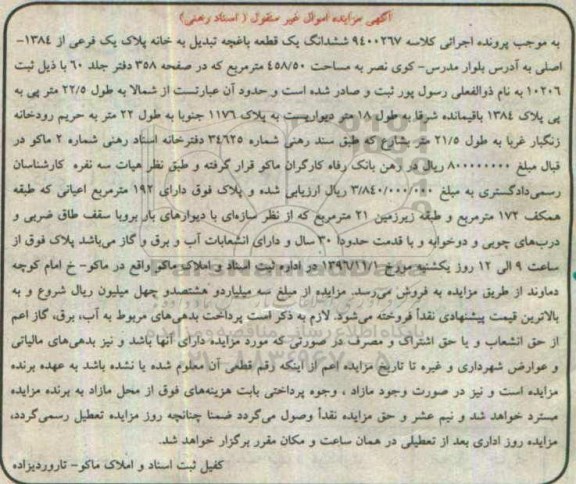 آگهی مزایده اموال غیر منقول ( اسناد رهنی)
به موجب پرونده اجرائی کلاسه ۹۴۰۰۲۶۷ ششدانگ یک قطعه باغچه تبدیل به خانه پلاک یک فرعی از ۱۳۸۴-
اصلی به آدرس بلوار مدرس- کوی نصر به مساحت ۴۵۸/۵۰ مترمربع که در صفحه ۳۵۸ دفتر جلد ۶۰ با ذیل ثبت
۱۰۲۰۶ به نام ذوالفعلی رسول پور ثبت و صادر شده است و حدود آن عبارتست از شمالا به طول ۲۲/۵ متر پی به
پی پلاک ۱۳۸۴ باقیمانده شرقا به طول ۱۸ متر دیواریست به پلاک ۱۱۷۶ جنوبا به طول ۲۲ متر به حریم رودخانه
زنگبار غربا به طول ۲۱/۵ متر بشارع که طبق سند رهنی شماره ۳۴۶۲۵ دفترخانه اسناد رهنی شماره ۲ ماکو در
قبال مبلغ ۸۰۰۰۰۰۰۰۰ ریال در رهن بانک رفاه کارگران ماکو قرار گرفته و طبق نظر هیات سه نفره کارشناسان
رسمی‌دادگستری به مبلغ ۳/۸۴۰/۰۰۰/۰۰۰ ریال ارزیابی شده و پلاک فوق دارای ۱۹۲ مترمربع اعیانی که طبقه
همکف ۱۷۲ مترمربع و طبقه زیرزمین ۲۱ مترمربع که از نظر سازه‌ای با دیوارهای بار بروبا سقف طاق ضربی و
درب‌های چوبی و دوخوابه و با قدمت حدودا ۳۰ سال و دارای انشعابات آب و برق و گاز می‌باشد پلاک فوق از
ساعت ۹ الی ۱۲ روز یکشنبه مورخ ۱۳۹۶/۱۱/۱ در اداره ثبت اسناد و املاک ماکو واقع در ماکو- خ امام کوچه
دماوند از طریق مزایده به فروش می‌رسد. مزایده از مبلغ سه میلیاردو هشتصدو چهل میلیون ریال شروع و به
بالاترین قیمت پیشنهادی نقداً فروخته می‌شود. لازم به ذکر است پرداخت بدهی‌های مربوط به آب، برق، گاز اعم
از حق انشعاب و یا حق اشتراک و مصرف در صورتی که مورد مزایده دارای آنها باشد و نیز بدهی‌های مالیاتی
و عوارض شهرداری و غیره تا تاریخ مزایده اعم از اینکه رقم قطعی آن معلوم شده یا نشده باشد به عهده برنده
مزایده است و نیز در صورت وجود مازاد ، وجوه پرداختی بابت هزینه‌های فوق از محل مازاد به برنده مزایده
مسترد خواهد شد و نیم عشر و حق مزایده نقداً وصول می‌گردد ضمنا چنانچه روز مزایده تعطیل رسمی‌گردد،
مزایده روز اداری بعد از تعطیلی در همان ساعت و مکان مقرر برگزار خواهد شد.
کفیل ثبت اسناد و املاک ماکو- تاروردیزاده